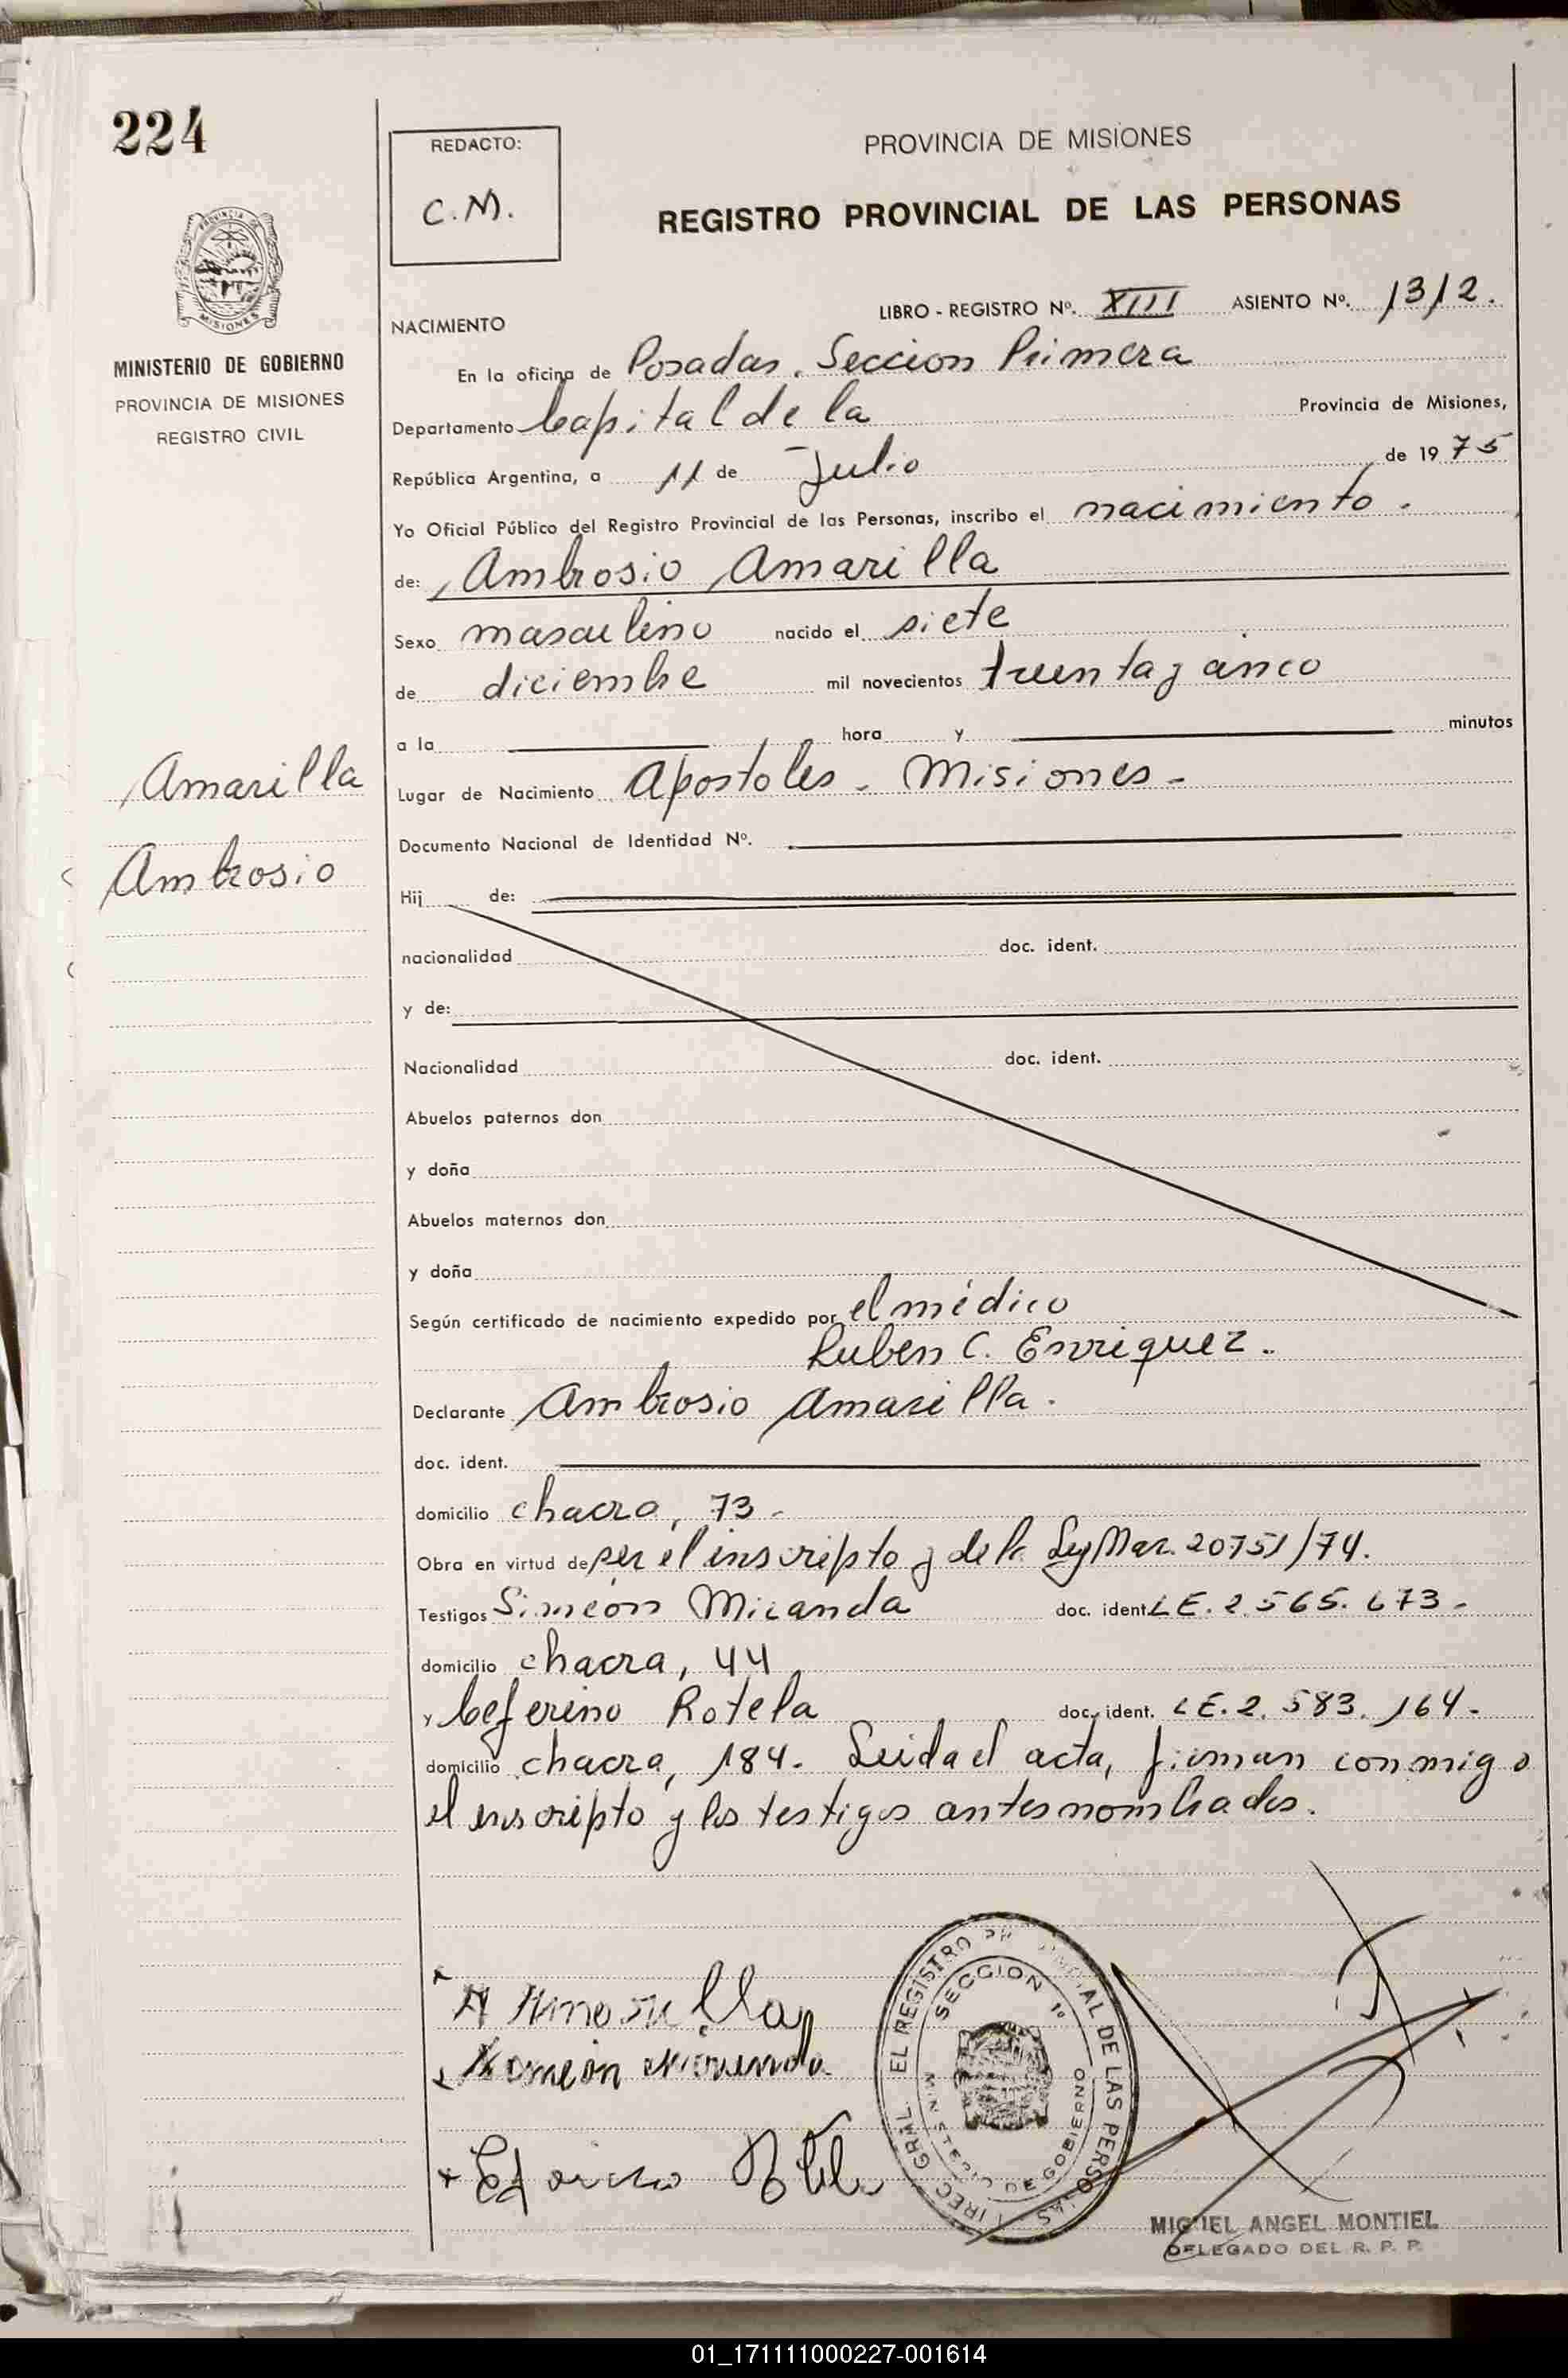 224
REDACTO:
C.M.
PROVINCIA DE MISIONES
REGISTRO PROVINCIAL DE LAS PERSONAS
PROVINCIA DE MISIONES
MINISTERIO DE GOBIERNO
PROVINCIA DE MISIONES
REGISTRO CIVIL
Amarilla
Ambrosio
LIBRO - REGISTRO Nº. XIII ASIENTO Nº. 1312.
NACIMIENTO
En la oficina de Posadas. Seccion Primera
Departamento Capital de la Provincia de Misiones,
República Argentina, a 11 de Julio de 1975
Yo Oficial Público del Registro Provincial de las Personas, inscribo el nacimiento.
de: Ambrosio Amarilla
Sexo masculino nacido el siete
de diciembre mil novecientos treinta y cinco
a la hora y minutos
Lugar de Nacimiento Apostoles - Misiones -
Documento Nacional de Identidad Nº.
Hij de:
nacionalidad doc. ident.
y de:
Nacionalidad doc. ident.
Abuelos paternos don
y doña
Abuelos maternos don
y doña
Según certificado de nacimiento expedido por el médico
Ruben C. Enriquez.
Declarante Ambrosio Amarilla.
doc. ident.
domicilio chacra, 73 -
Obra en virtud de ser el inscripto y de la Ley Nac. 20751/74.
Testigos Simeón Miranda doc. ident. LE. 2.565.673 -
domicilio chacra, 44
y Ceferino Rotela doc. ident. LE. 2.583.164 -
domicilio chacra, 184. Leida el acta, firman conmigo
el inscripto y los testigos antes nombrados.
A Amarilla
Simeon Miranda
EL REGISTRO PROVINCIAL DE LAS PERSONAS
SECCION 1º
MINISTERIO DE GOBIERNO
MIGUEL ANGEL MONTIEL
DELEGADO DEL R. P. P.
01_171111000227-001614